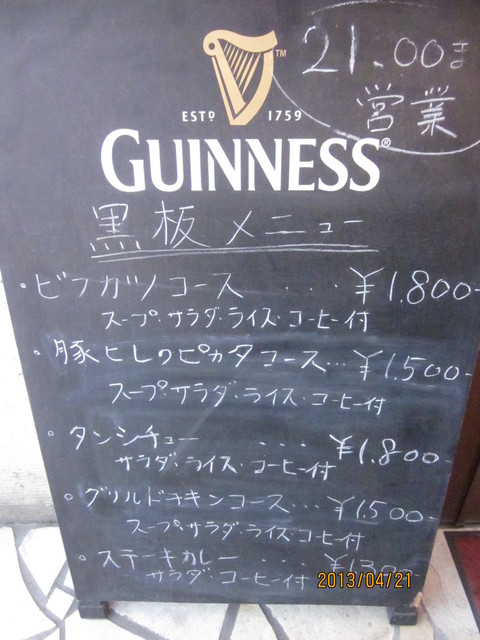 21.00ま
営業
TM
ESTD 1759
GUINNESS®
黒板メニュー
・ビフカツコース ・・・ ¥1.800-
スープ・サラダ・ライス・コーヒー付
・豚ヒレのピカタコース… ¥1,500-
スープ・サラダ・ライス・コーヒー付
・タンシチュー ・・・ ¥1.800-
サラダ・ライス・コーヒー付
・グリルドチキンコース… ¥1,500-
スープ・サラダ・ライス・コーヒー付
・ステーキカレー ・・・
サラダ・コーヒー付
2013/04/21